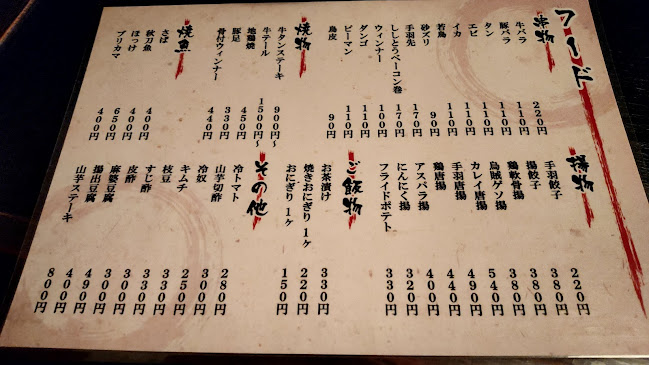 フード
串物
牛バラ 220円
豚バラ 110円
タン 110円
エビ 110円
イカ 110円
若鳥 110円
砂ズリ 90円
手羽先 170円
ししとうベーコン巻 170円
ウィンナー 100円
ダンゴ 110円
ピーマン 110円
鳥皮 90円
焼物
牛タンステーキ 900円〜
牛テール 1500円〜
地鶏焼 450円
豚足 330円
骨付ウィンナー 440円
焼魚
さば 400円
秋刀魚 400円
ほっけ 650円
ブリカマ 400円
揚物
手羽餃子 220円
揚餃子 380円
鶏軟骨揚 380円
烏賊ゲソ揚 380円
カレイ唐揚 540円
手羽唐揚 490円
鶏唐揚 440円
アスパラ揚 440円
にんにく揚 320円
フライドポテト 330円
ご飯物
お茶漬け 330円
焼きおにぎり1ヶ 220円
おにぎり1ヶ 150円
その他
冷トマト 280円
山芋切酢 300円
冷奴 250円
キムチ 330円
枝豆 330円
すじ酢 300円
皮酢 300円
麻婆豆腐 490円
揚出豆腐 400円
山芋ステーキ 800円